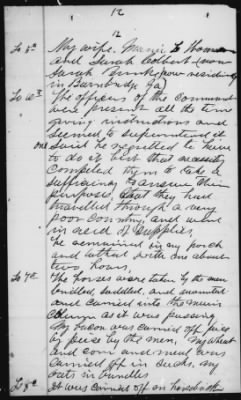 12
12
To 5th My wife. Margie E
and Sarah Colbert now
Sarah now residing
in Barnbridge Ga)
To 6th The officers of the command
were present all the time
giving instructions and
seemed to superintend it
one said he regretted to have
to do it but that necessity
compelled them to take a
sufficiency to answer their
purposes, that they had
travelled through a very
poor country and were
in need of supplies,
He remained in my porch
and talked with me about
two hours,
To 7th The horses were taken by the men
bridled, saddled, and mounted
and carried into the main
column as it was passing
My bacon was carried off piece
by piece by the men, my wheat
and corn and meal was
carried off in sacks, my
oats in bundles
To 8th it was carried off on horseback